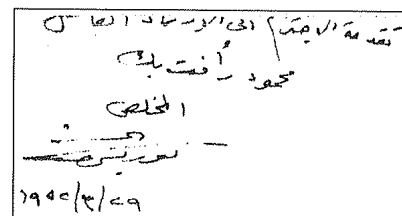 تقدمة الاحترام الى الاستاذ الفاضل
محمود رأفت بك
المخلص
١٩٥٢/٣/٢٩